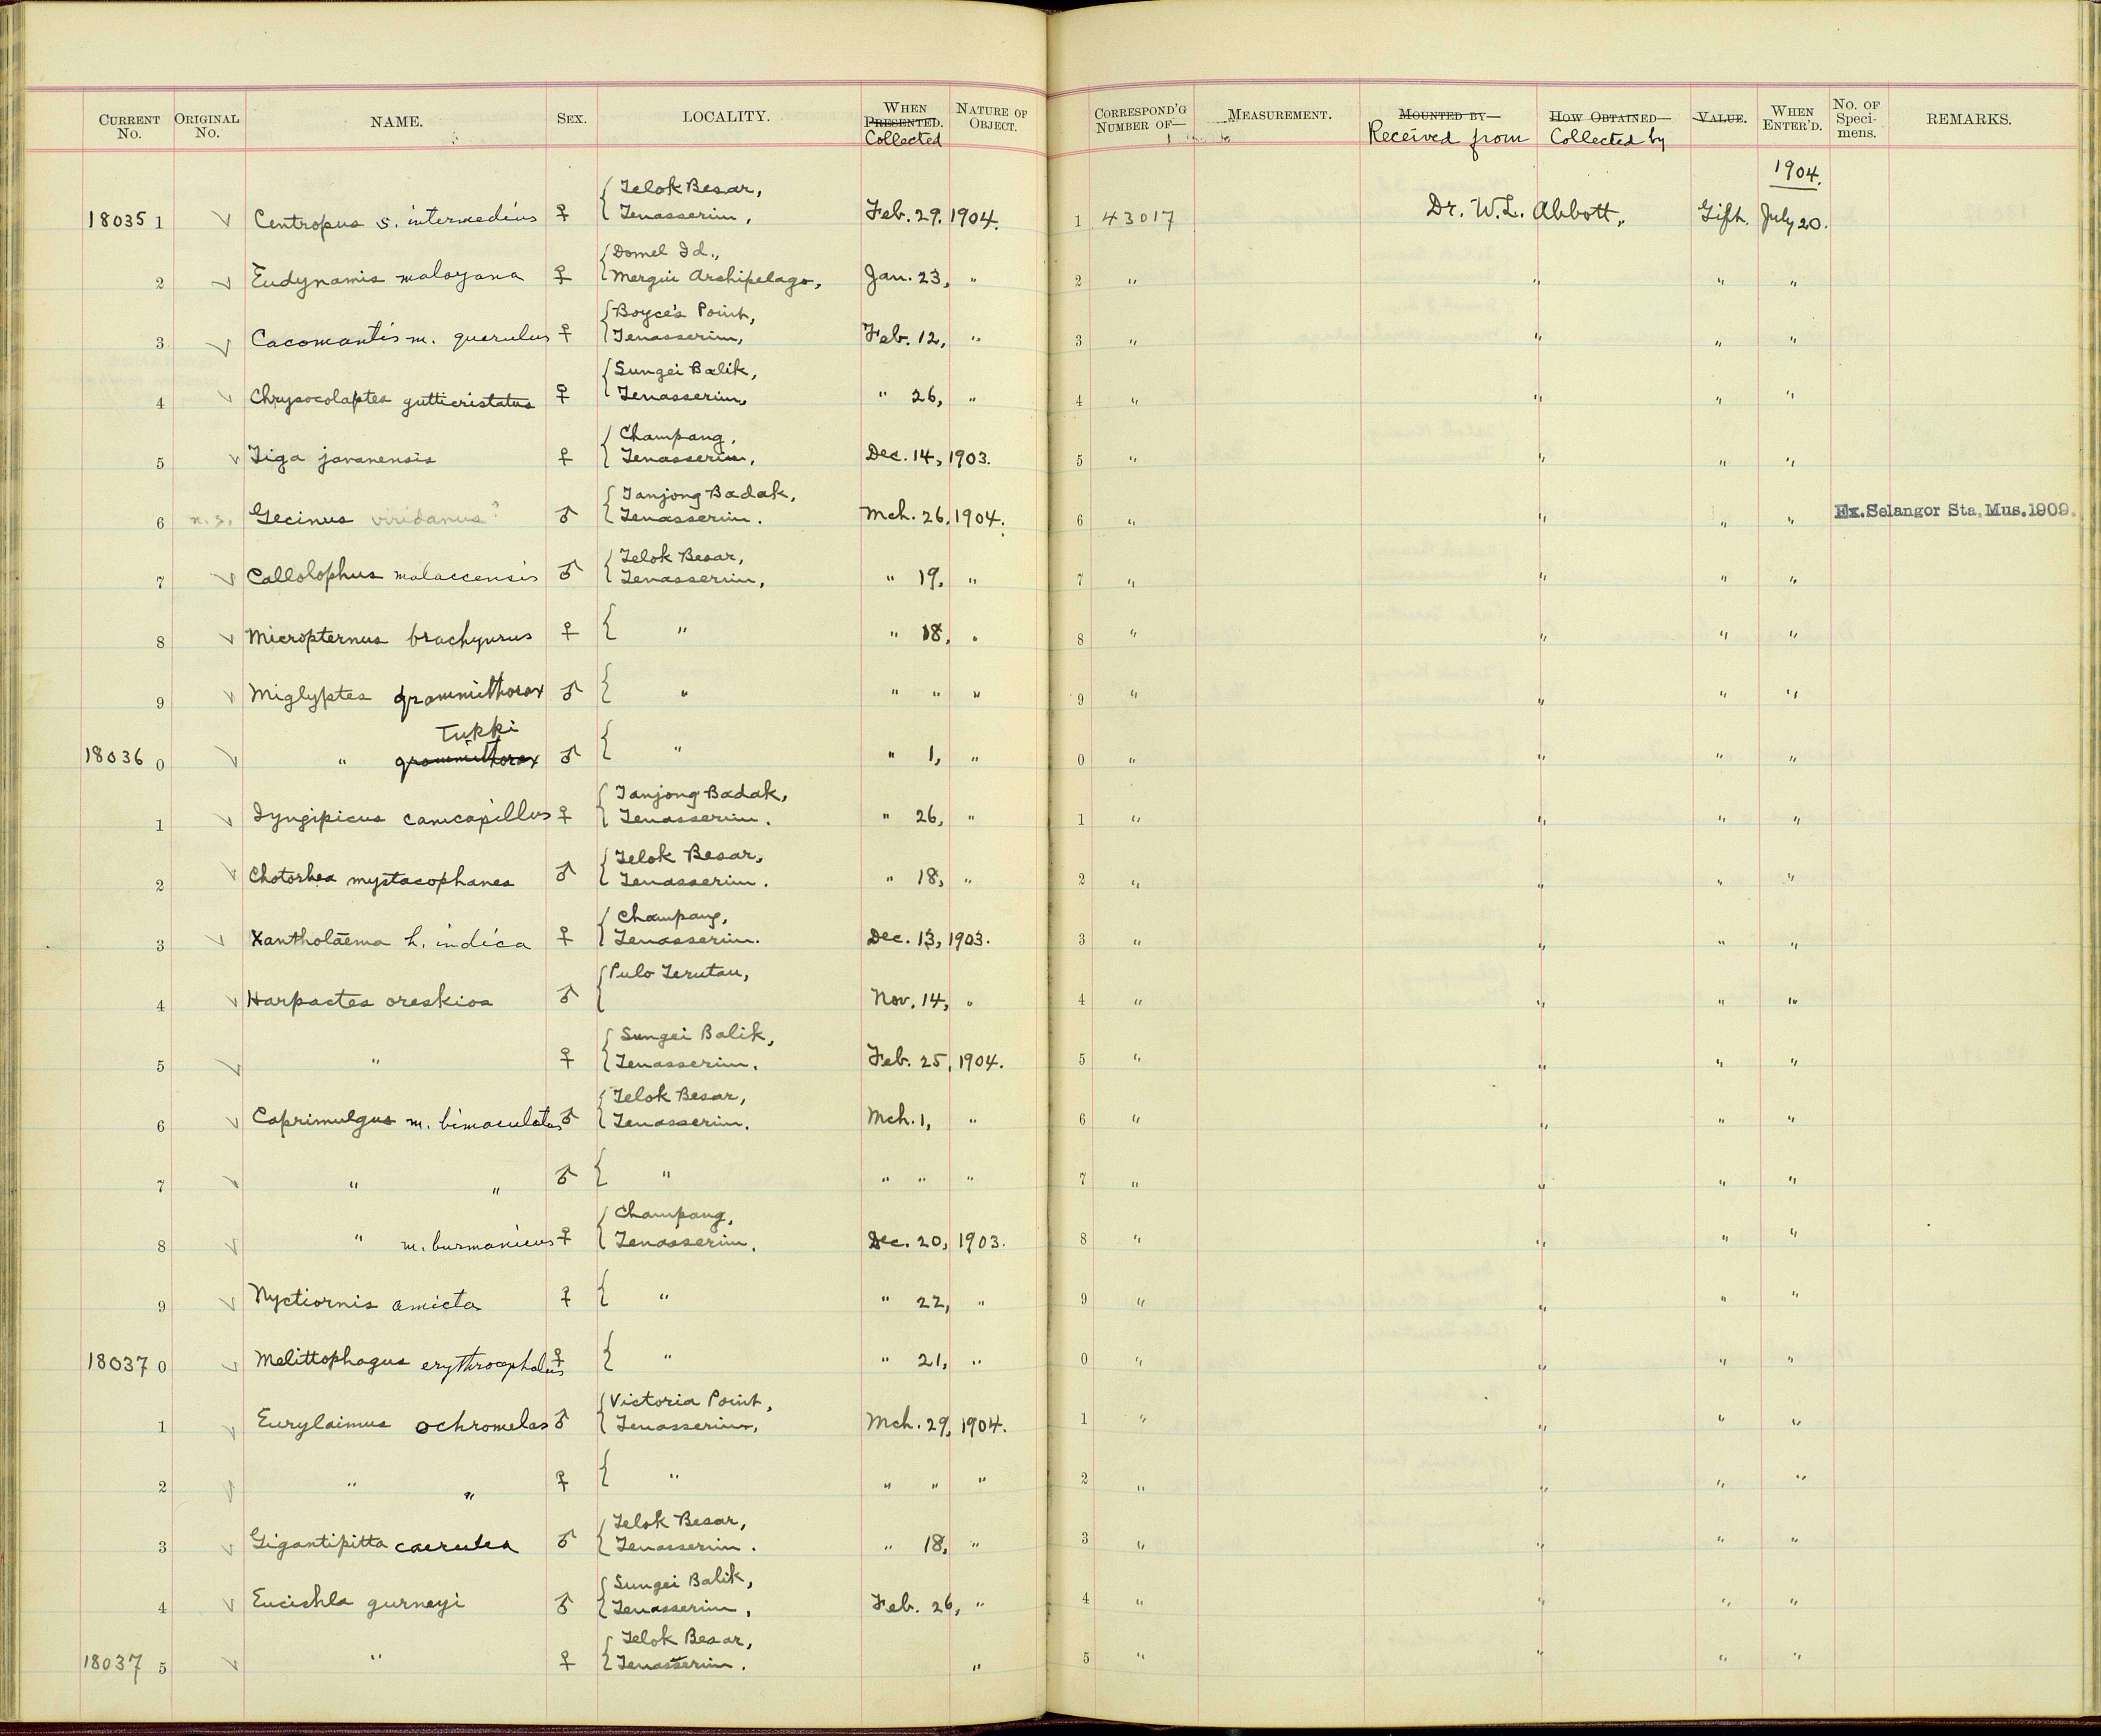 CURRENT No. ORIGINAL No. NAME. SEX. LOCALITY. WHEN PRESENTED. Collected NATURE OF OBJECT. CORRESPOND'G NUMBER OF— MEASUREMENT. MOUNTED BY— Received from HOW OBTAINED— Collected by VALUE. WHEN ENTER'D. No. OF Speci-mens. REMARKS.
1904.
Telok Besar,
18035 1 ✓ Centropus s. intermedius ♀ { Tenasserim, Feb. 29, 1904. 1 43017 Dr. W.L. Abbott, Gift. July 20.
Domel Id.,
2 ✓ Eudynamis malayana ♀ { Mergui Archipelago, Jan. 23, " 2 " " " "
Boyce's Point,
3 ✓ Cacomantis m. querulus ♀ { Tenasserim, Feb. 12, " 3 " " " "
Sungei Balik,
4 ✓ Chrysocolaptes gutticristatus ♀ { Tenasserim, " 26, " 4 " " " "
Champang,
5 ✓ Tiga javanensis ♀ { Tenasserim, Dec. 14, 1903. 5 " " " "
Tanjong Badak,
6 n.s. Gecinus viridanus? ♂ { Tenasserim. Mch. 26, 1904. 6 " " " " Ex. Selangor Sta. Mus. 1909.
Telok Besar,
7 ✓ Callolophus malaccensis ♂ { Tenasserim, " 19, " 7 " " " "
8 ✓ Micropternus brachyurus ♀ { " " 18, " 8 " " " "
9 ✓ Miglyptes grammithorax ♂ { " " " " 9 " " " "
Tukki
18036 0 ✓ " grammithorax ♂ { " " 1, " 0 " " " "
Tanjong Badak,
1 ✓ Iyngipicus canicapillus ♀ { Tenasserim. " 26, " 1 " " " "
Telok Besar,
2 ✓ Chotorhea mystacophanes ♂ { Tenasserim. " 18, " 2 " " " "
Champang,
3 ✓ Xantholaema h. indica ♀ { Tenasserim. Dec. 13, 1903. 3 " " " "
Pulo Terutau,
4 ✓ Harpactes oreskios ♂ { Nov. 14, " 4 " " " "
Sungei Balik,
5 ✓ " ♀ { Tenasserim. Feb. 25, 1904. 5 " " " "
Telok Besar,
6 ✓ Caprimulgus m. bimaculatus ♂ { Tenasserim. Mch. 1, " 6 " " " "
7 ✓ " " ♂ { " " " " 7 " " " "
Champang,
8 ✓ " m. burmanicus ♀ { Tenasserim. Dec. 20, 1903. 8 " " " "
9 ✓ Nyctiornis amicta ♀ { " " 22, " 9 " " " "
18037 0 ✓ Melittophagus erythrocephalus ♀ { " " 21, " 0 " " " "
Victoria Point,
1 ✓ Eurylaimus ochromelas ♂ { Tenasserim, Mch. 29, 1904. 1 " " " "
2 ✓ " " ♀ { " " " " 2 " " " "
Telok Besar,
3 ✓ Gigantipitta caerulea ♂ { Tenasserim. " 18, " 3 " " " "
Sungei Balik,
4 ✓ Eucichla gurneyi ♂ { Tenasserim, Feb. 26, " 4 " " " "
Telok Besar,
18037 5 ✓ " ♀ { Tenasserim. " 5 " " " "